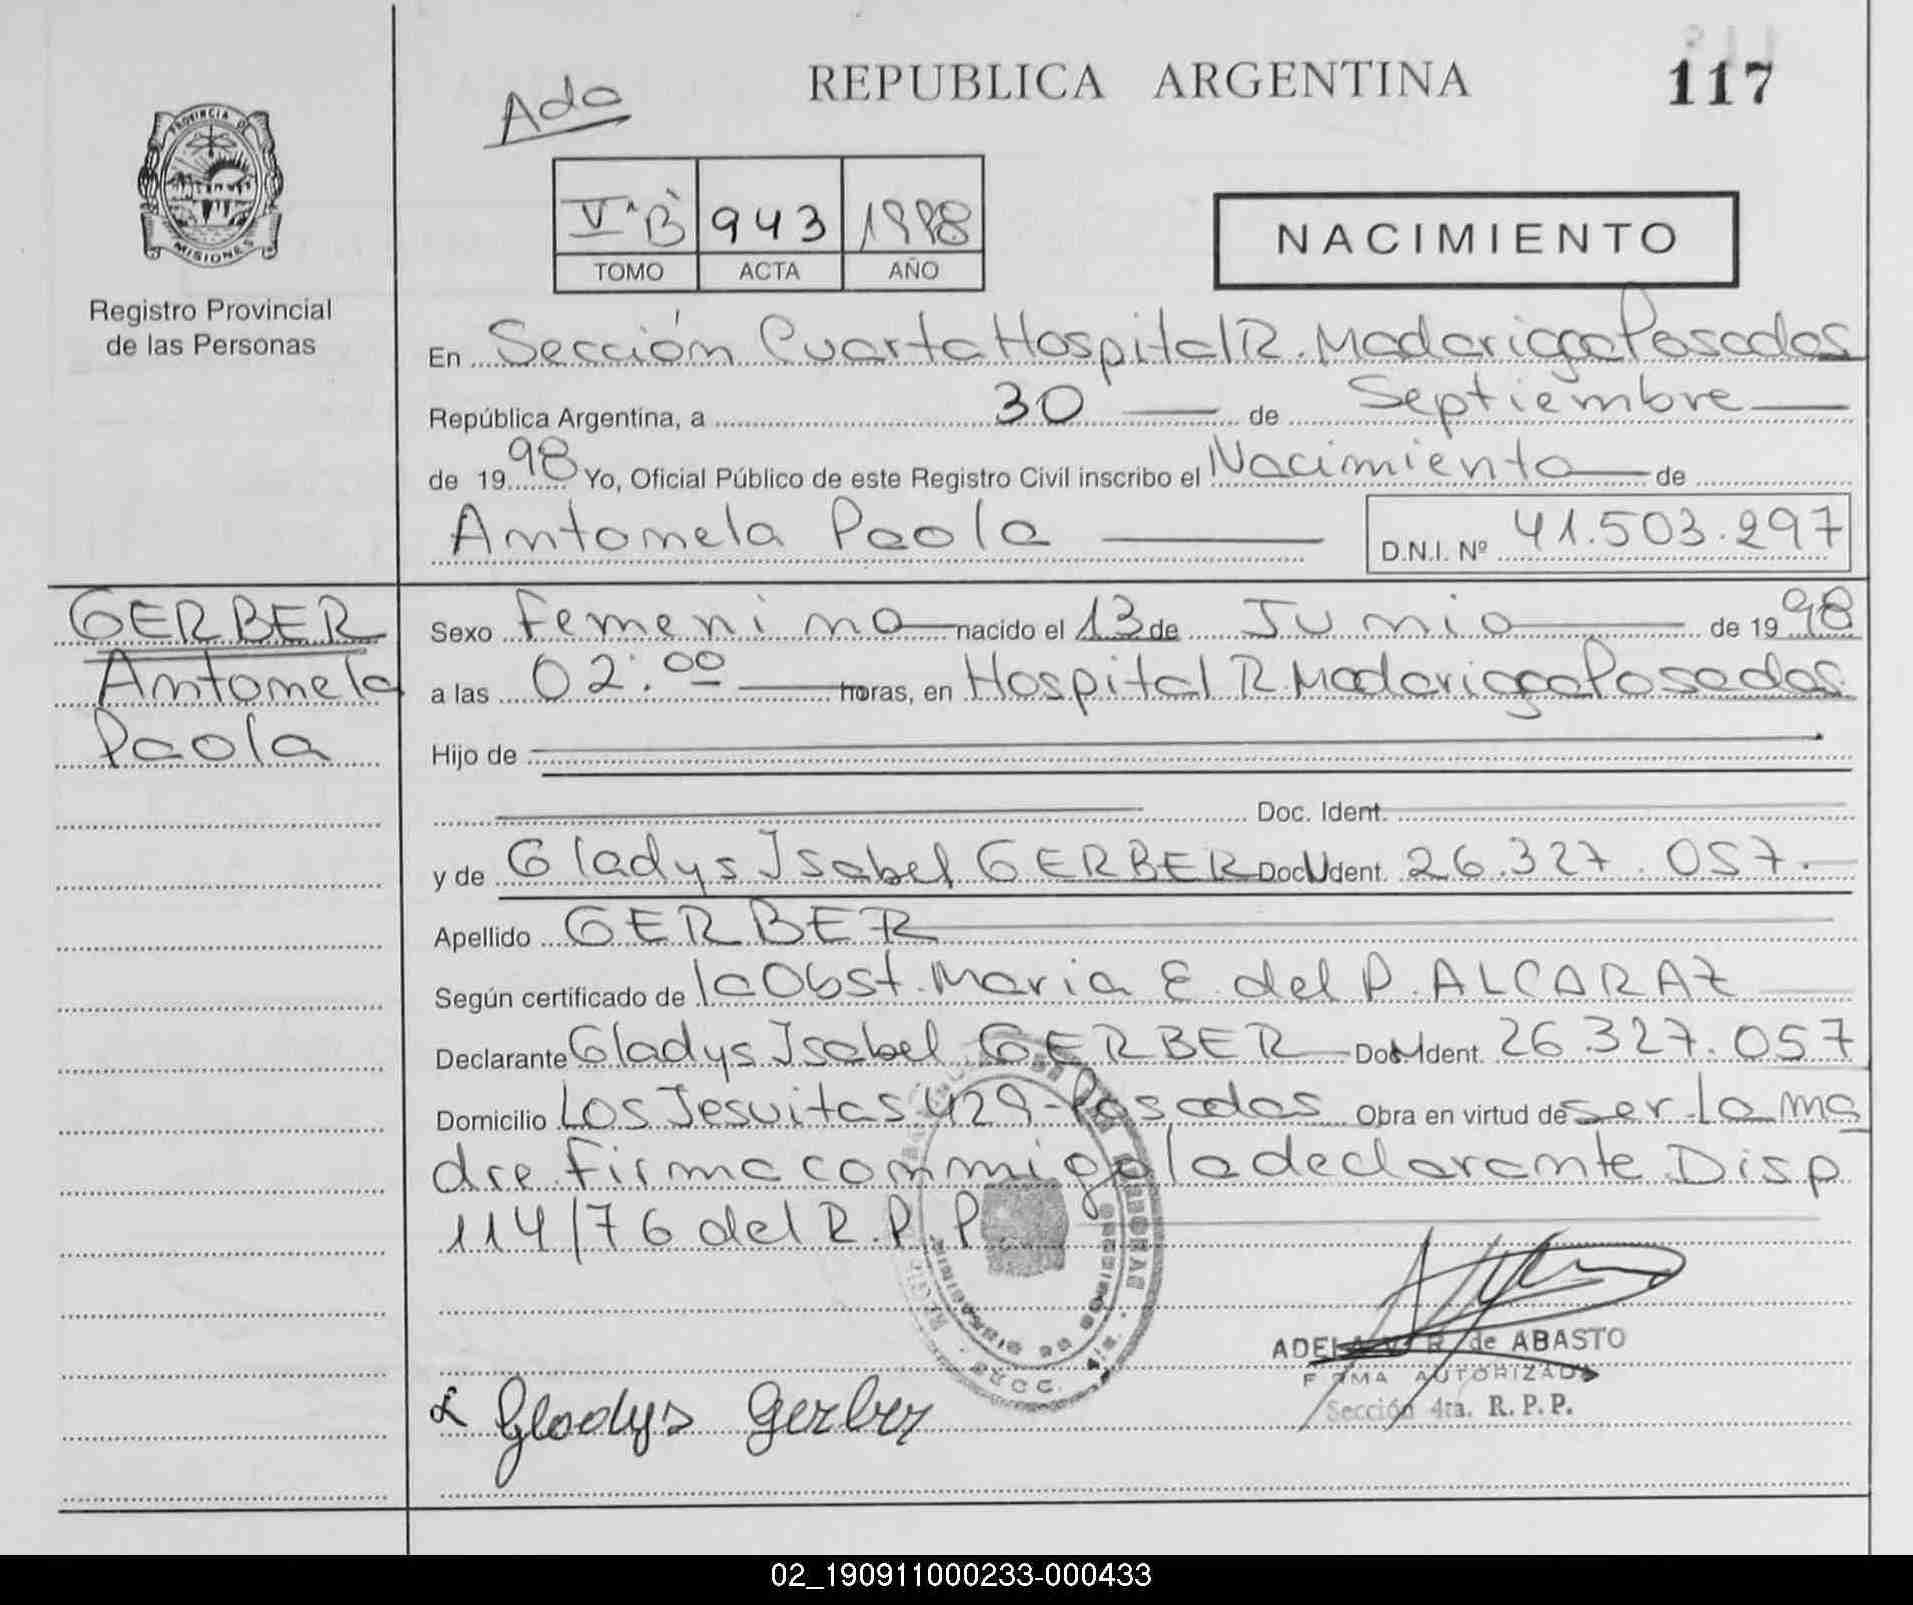 117
REPUBLICA ARGENTINA
Ada
PROVINCIA DE MISIONES
Registro Provincial
de las Personas
Vº B 943 1998
TOMO ACTA AÑO
NACIMIENTO
En Sección Cuarta Hospital R. Madariaga Posadas
República Argentina, a 30 de Septiembre
de 1998 Yo, Oficial Público de este Registro Civil inscribo el Nacimiento de
Antonela Paola D.N.I. Nº 41.503.297
GERBER
Antonela
Paola
Sexo Femenino nacido el 13 de Junio de 1998
a las 02:00 horas, en Hospital R. Madariaga Posadas
Hijo de
Doc. Ident.
y de Gladys Isabel GERBER Doc. Ident. 26.327.057.
Apellido GERBER
Según certificado de la Obst. Maria E. del P. ALCARAZ
Declarante Gladys Isabel GERBER Doc. Ident. 26.327.057
Domicilio Los Jesuitas 429 - Posadas Obra en virtud de ser la ma
dre firma conmigo la declarante Disp
114/76 del R.P.P.
de ABASTO
FIRMA AUTORIZADA
Sección 4ta. R.P.P.
Gladys Gerber
02_190911000233-000433